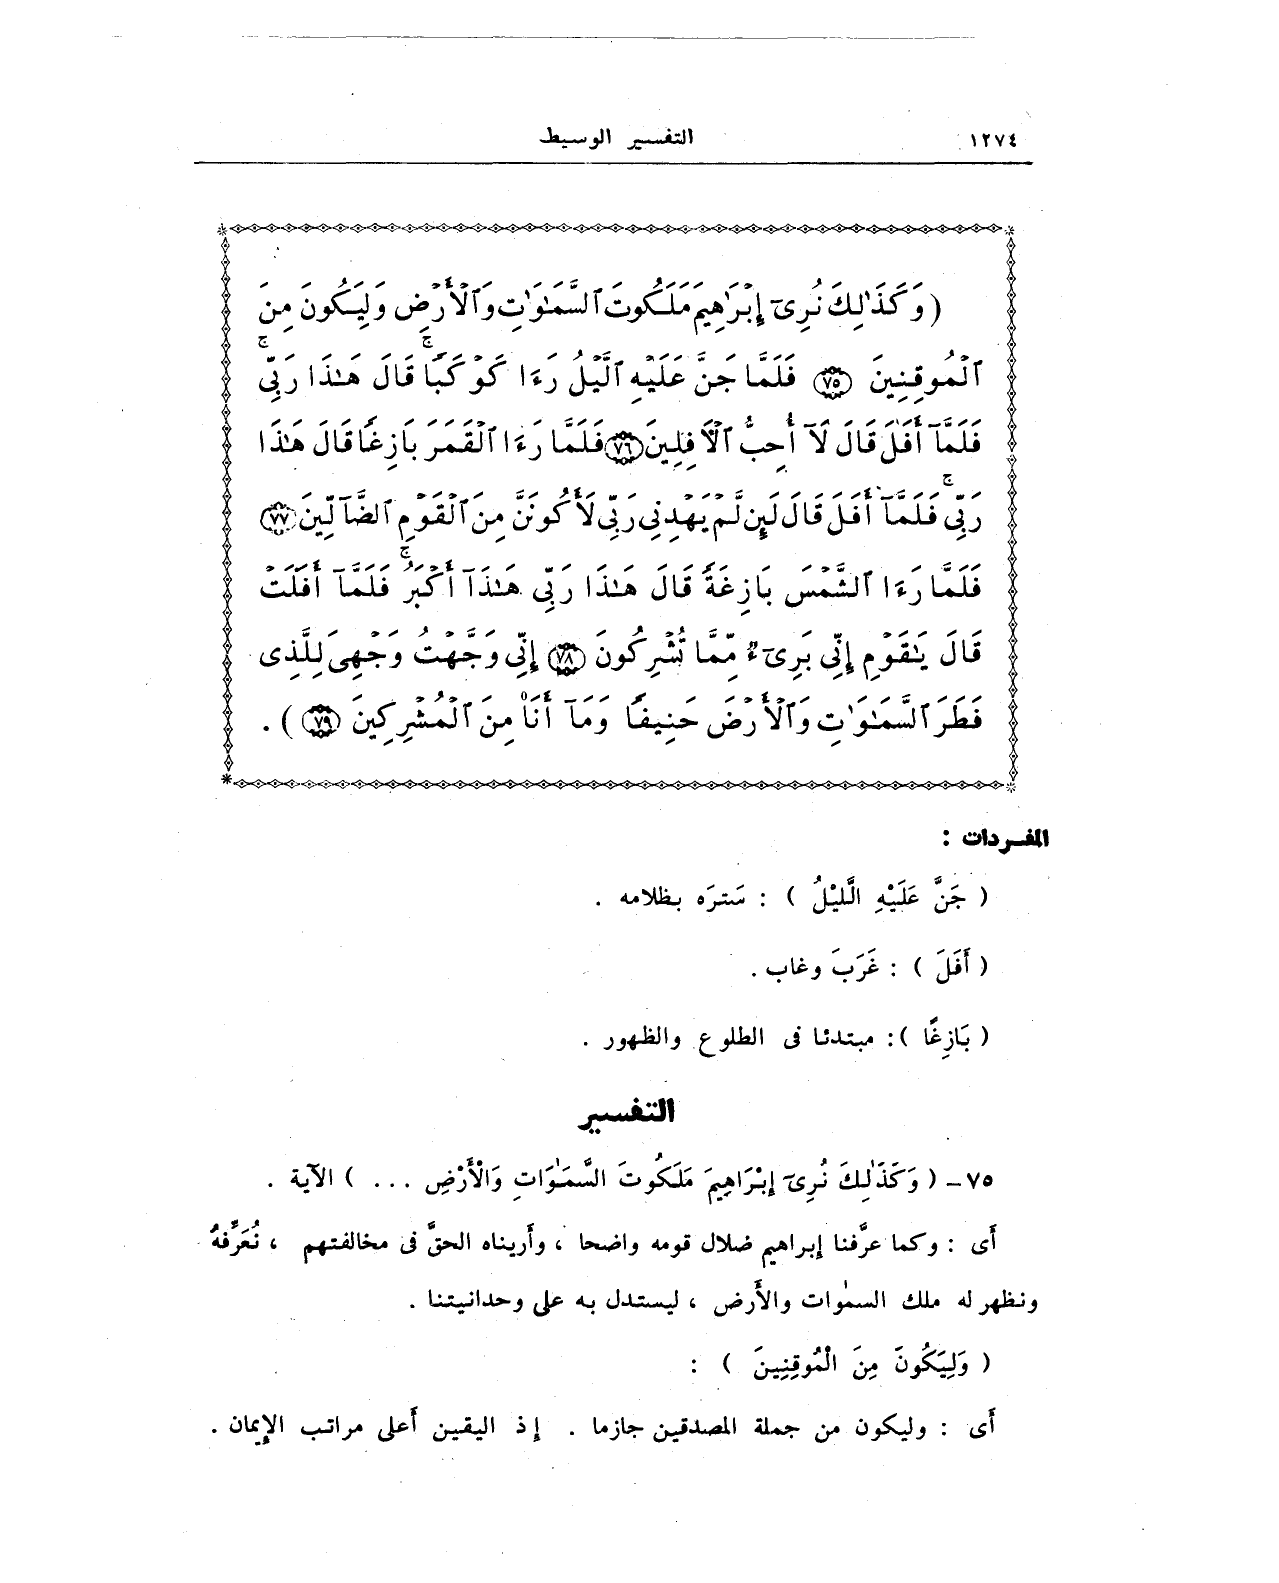 ١٢٧٤
التفسير الوسيط
( وَكَذَٰلِكَ نُرِىٓ إِبْرَٰهِيمَ مَلَكُوتَ ٱلسَّمَٰوَٰتِ وَٱلْأَرْضِ وَلِيَكُونَ مِنَ
ٱلْمُوقِنِينَ ﴿٧٥﴾ فَلَمَّا جَنَّ عَلَيْهِ ٱلَّيْلُ رَءَا كَوْكَبًا ۖ قَالَ هَٰذَا رَبِّى ۖ
فَلَمَّآ أَفَلَ قَالَ لَآ أُحِبُّ ٱلْآفِلِينَ ﴿٧٦﴾ فَلَمَّا رَءَا ٱلْقَمَرَ بَازِغًا قَالَ هَٰذَا
رَبِّى ۚ فَلَمَّآ أَفَلَ قَالَ لَئِن لَّمْ يَهْدِنِى رَبِّى لَأَكُونَنَّ مِنَ ٱلْقَوْمِ ٱلضَّآلِّينَ ﴿٧٧﴾
فَلَمَّا رَءَا ٱلشَّمْسَ بَازِغَةً قَالَ هَٰذَا رَبِّى هَٰذَآ أَكْبَرُ ۚ فَلَمَّآ أَفَلَتْ
قَالَ يَٰقَوْمِ إِنِّى بَرِىٓءٌ مِّمَّا تُشْرِكُونَ ﴿٧٨﴾ إِنِّى وَجَّهْتُ وَجْهِىَ لِلَّذِى
فَطَرَ ٱلسَّمَٰوَٰتِ وَٱلْأَرْضَ حَنِيفًا وَمَآ أَنَا۠ مِنَ ٱلْمُشْرِكِينَ ﴿٧٩﴾ ) .
المفردات :
( جَنَّ عَلَيْهِ الَّليْلُ ) : سَترَه بظلامه .
( أَفَلَ ) : غَرَبَ وغاب .
( بَازِغًا ) : مبتدئا فى الطلوع والظهور .
التفسير
٧٥ - ( وَكَذَٰلِكَ نُرِىٓ إِبْرَاهِيمَ مَلَكُوتَ السَّمَٰوَاتِ وَالْأَرْضِ ... ) الآية .
أى : وكما عرَّفنا إبراهيم ضلال قومه واضحا ، وأريناه الحقَّ فى مخالفتهم ، نُعَرِّفهُ
ونظهر له ملك السمٰوات والأَرض ، ليستدل به على وحدانيتنا .
( وَلِيَكُونَ مِنَ الْمُوقِنِينَ ) :
أَى : وليكون من جملة المصدقين جازما . إذ اليقين أَعلى مراتب الإِيمان .